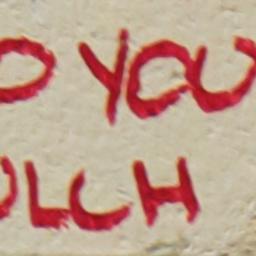 O YOU
ULCH